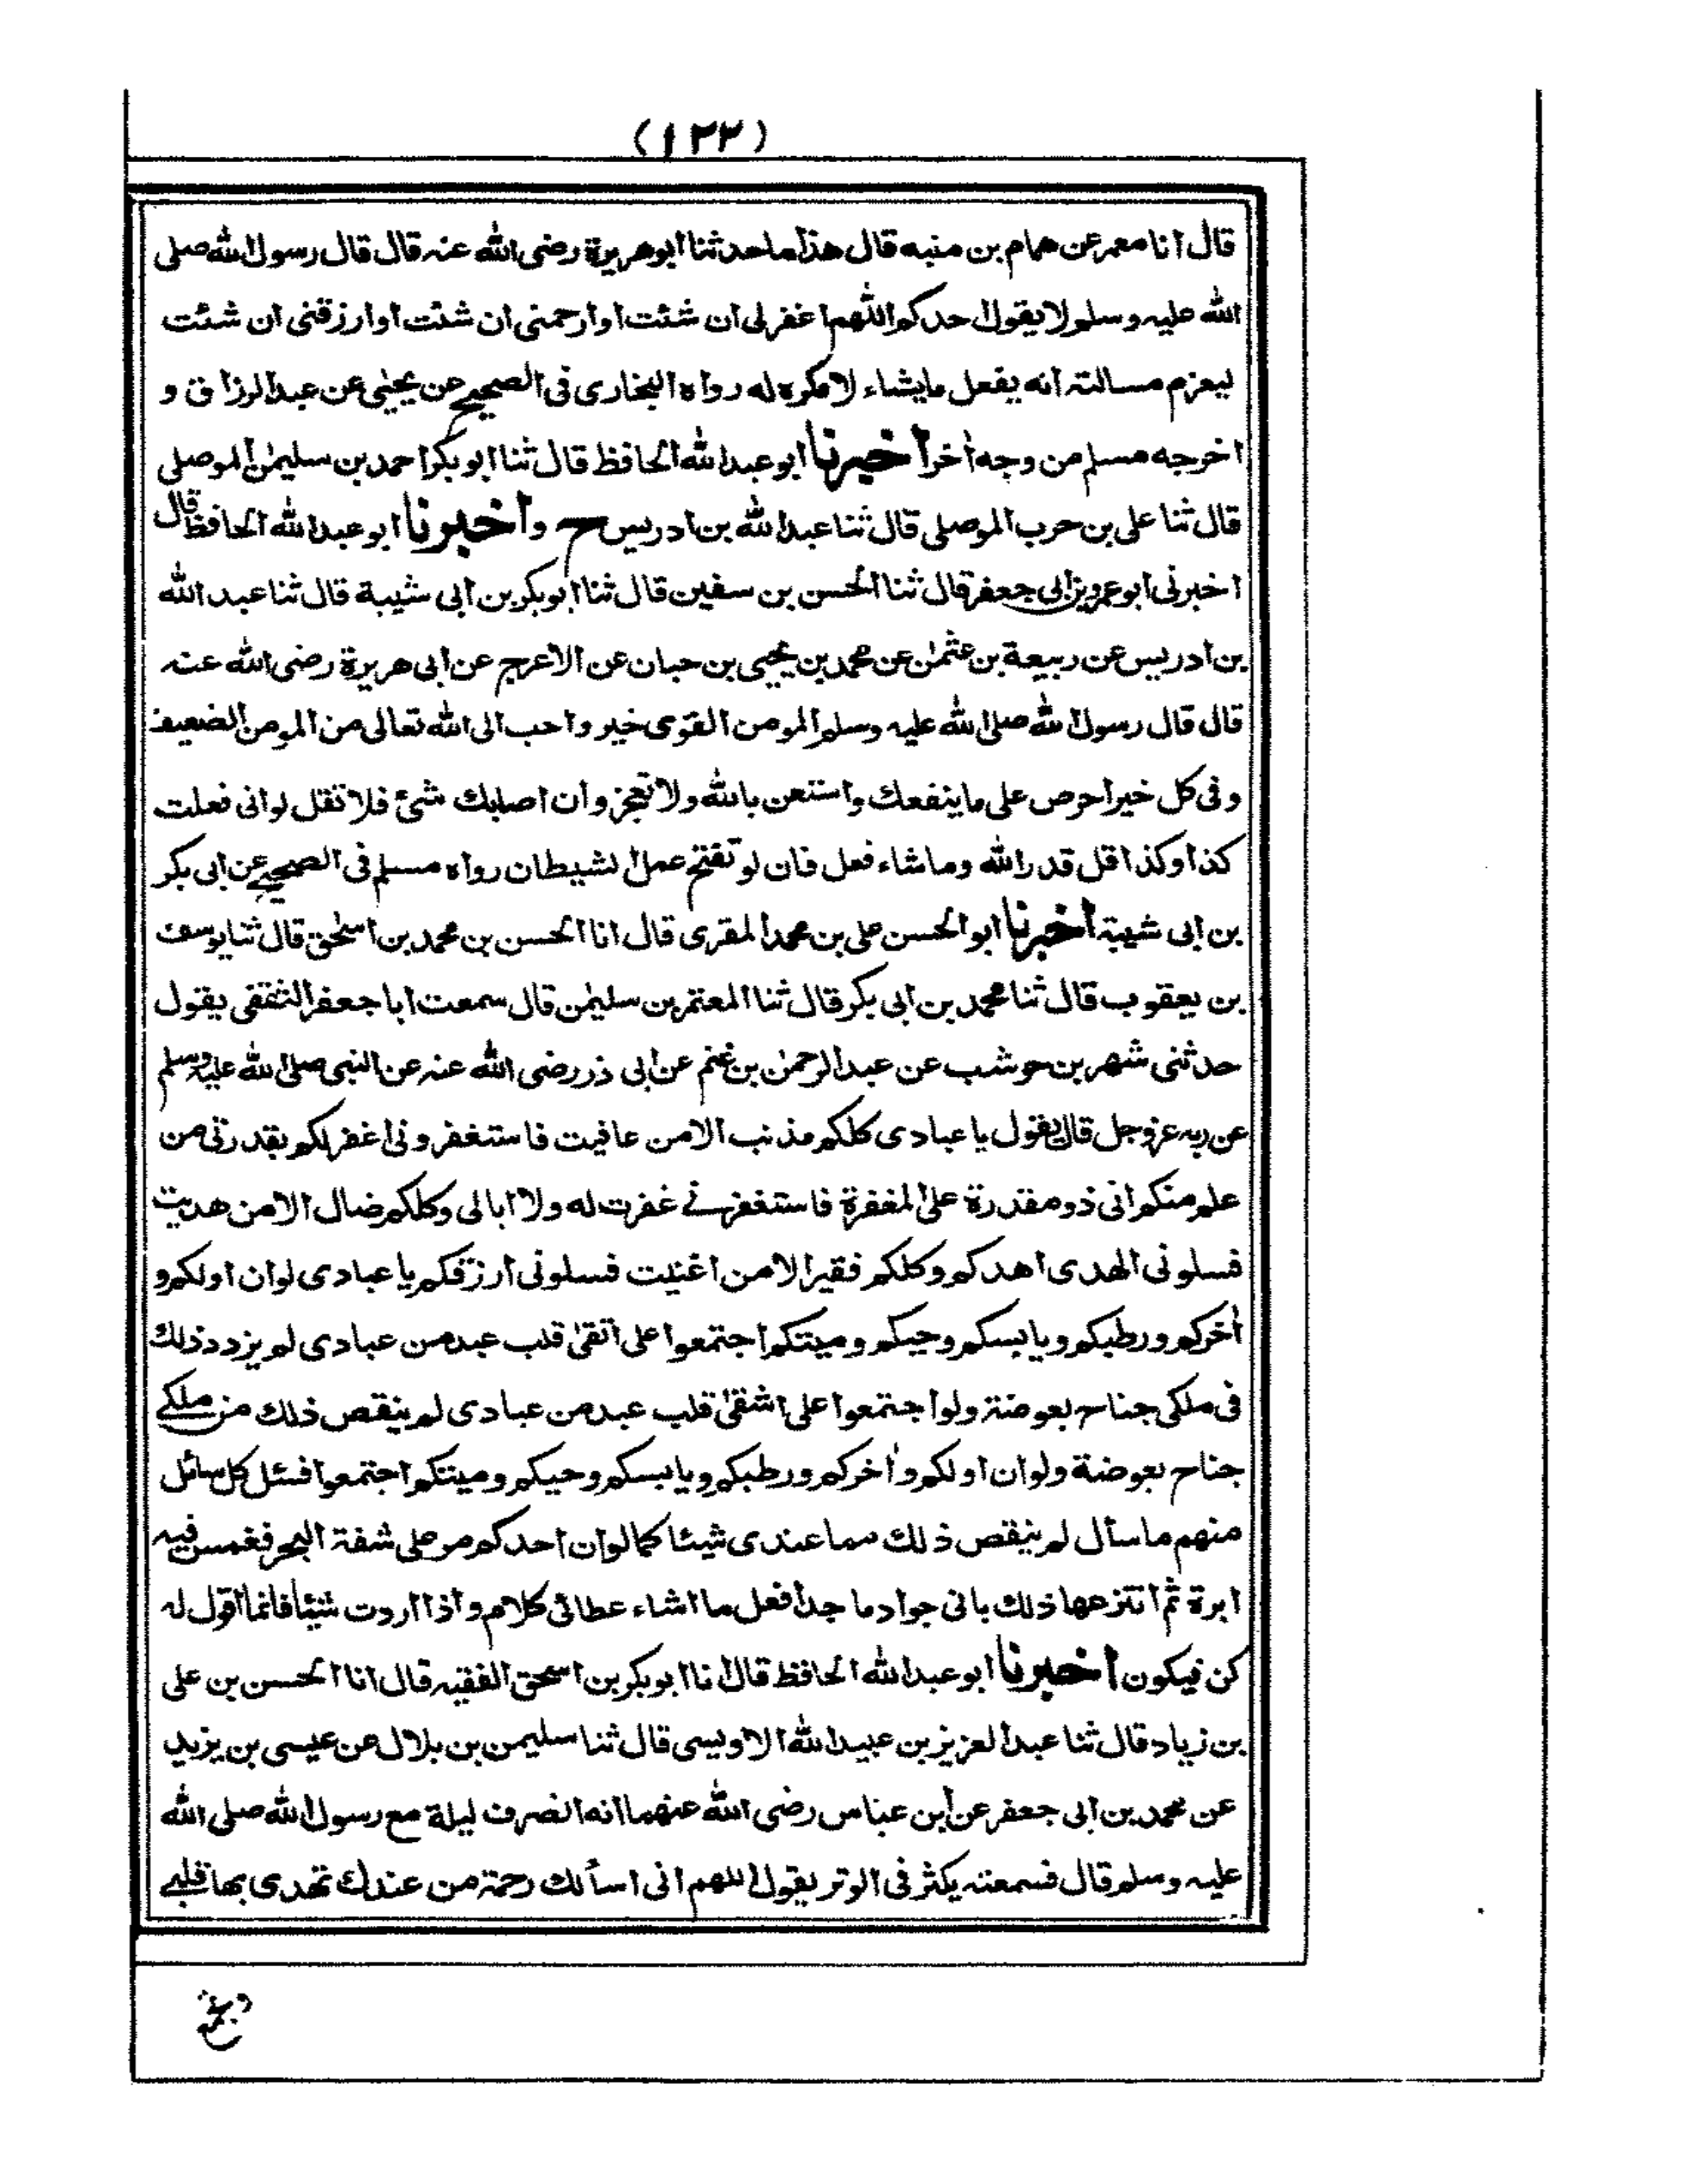 (١٢٣)
قال انا معمر عن همام بن منبه قال هذا ما حدثنا ابوهريرة رضى الله عنه قال قال رسول الله صلى
الله عليه وسلم لا يقول احدكم اللهم اغفر لى ان شئت او ارحمنى ان شئت او ارزقنى ان شئت
ليعزم مسالته انه يفعل ما يشاء لا مكره له رواه البخارى فى الصحيح عن يحيٰى عن عبد الرزاق و
اخرجه مسلم من وجه اٰخر اخبرنا ابو عبد الله الحافظ قال ثنا ابو بكر احمد بن سليمٰن الموصلى
قال ثنا على بن حرب الموصلى قال ثنا عبد الله بن ادريس ح واخبرنا ابو عبد الله الحافظ قال
اخبرنى ابو عمرو بن ابى جعفر قال ثنا الحسن بن سفين قال ثنا ابو بكر بن ابى شيبة قال ثنا عبد الله
بن ادريس عن ربيعة بن عثمٰن عن محمد بن يحيى بن حبان عن الاعرج عن ابى هريرة رضى الله عنه
قال قال رسول الله صلى الله عليه وسلم المومن القوى خير واحب الى الله تعالى من المومن الضعيف
وفى كل خير احرص على ما ينفعك واستعن بالله ولا تعجز وان اصابك شئ فلا تقل لو انى فعلت
كذا وكذا قل قدر الله وما شاء فعل فان لو تفتح عمل الشيطان رواه مسلم فى الصحيح عن ابى بكر
بن ابى شيبة اخبرنا ابو الحسن على بن محمد المقرى قال انا الحسن بن محمد بن اسحٰق قال ثنا يوسف
بن يعقوب قال ثنا محمد بن ابى بكر قال ثنا المعتمر بن سليمٰن قال سمعت ابا جعفر الثقفى يقول
حدثنى شهر بن حوشب عن عبد الرحمٰن بن غنم عن ابى ذر رضى الله عنه عن النبى صلى الله عليه وسلم
عن ربه عز وجل قال يقول يا عبادى كلكم مذنب الا من عافيت فاستغفرونى اغفر لكم بقدرتى من
علم منكم انى ذو مقدرة على المغفرة فاستغفرنے غفرت له ولا ابالى وكلكم ضال الا من هديت
فسلونى الهدى اهدكم وكلكم فقير الا من اغنيت فسلونى ارزقكم يا عبادى لو ان اولكم و
اٰخركم ورطبكم ويابسكم وحيكم وميتكم اجتمعوا على اتقىٰ قلب عبد من عبادى لم يزد ذلك
فى ملكى جناح بعوضة ولو اجتمعوا على اشقىٰ قلب عبد من عبادى لم ينقص ذلك من ملكے
جناح بعوضة ولو ان اولكم واٰخركم ورطبكم ويابسكم وحيكم وميتكم اجتمعوا فسئل كل سائل
منهم ما سأل لم ينقص ذلك مما عندى شيئا كما لو ان احدكم مر على شفة البحر فغمس فيه
ابرة ثم انتزعها ذلك بانى جواد ماجد افعل ما اشاء عطائى كلام واذا اردت شيئا فانما اقول له
كن فيكون اخبرنا ابو عبد الله الحافظ قال انا ابو بكر بن اسحق الفقيه قال انا الحسن بن على
بن زياد قال ثنا عبد العزيز بن عبيد الله الاويسى قال ثنا سليمن بن بلال عن عيسى بن يزيد
عن محمد بن ابى جعفر عن ابن عباس رضى الله عنهما انه انصرف ليلة مع رسول الله صلى الله
عليه وسلم قال فسمعته يكثر فى الوتر يقول اللهم انى اسألك رحمة من عندك تهدى بها قلبے